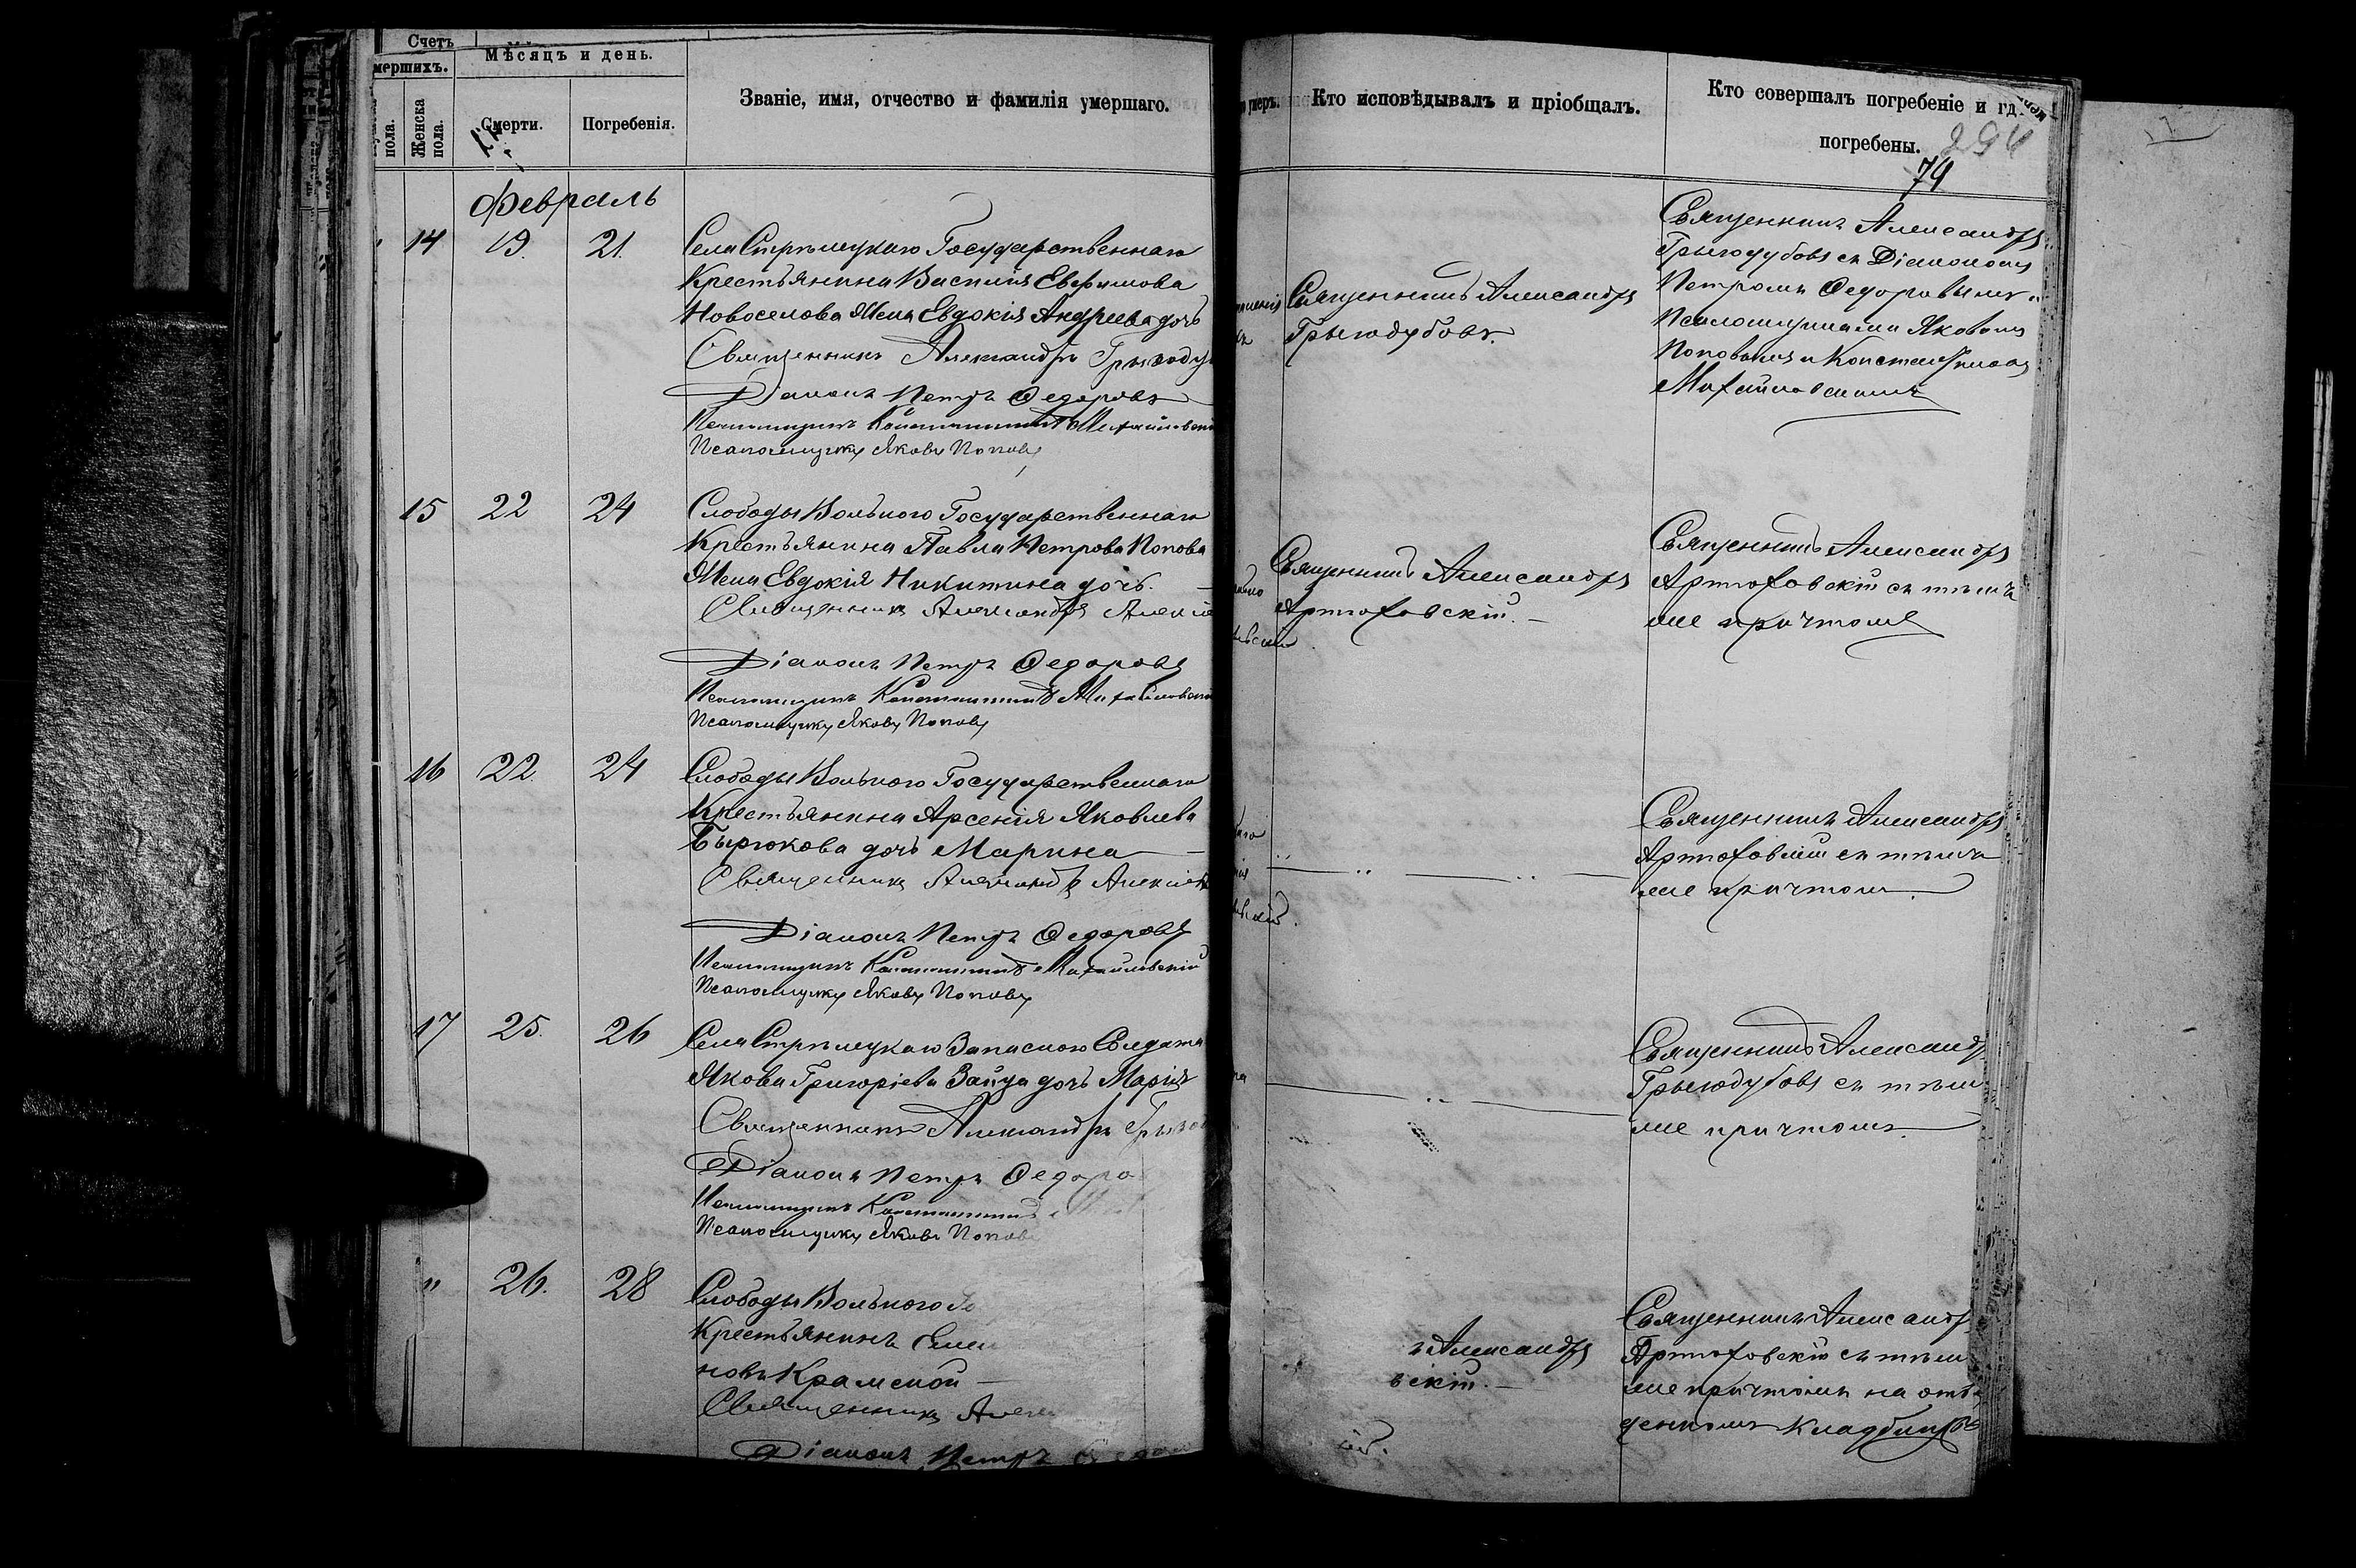 Счетъ
мершихъ.
Мѣсяцъ и день.
пола.
Женска
пола.
Смерти.
Погребенія.
Званіе, имя, отчество и фамилія умершаго.
Февраль
14 19. 21.
Села Стрѣлецкаго Государственнаго
Крестьянина Василія Евфимова
Новоселова Жена Евдокія Андреева дочь
Священникъ Александръ Грызоду
Діаконъ Петръ Ѳедоровъ
Псаломщикъ Константинъ Михайловскі
Псаломщикъ Яковъ Поповъ
15 22 24
Слободы Вольного Государственнаго
Крестьянина Павла Петрова Попова
Жена Евдокія Никитина дочь. —
Священникъ Александръ
Діаконъ Петръ Ѳедоровъ
Псаломщикъ Константинъ Михайловскі
Псаломщикъ Яковъ Поповъ
16 22 24
Слободы Вольного Государственнаго
Крестьянина Арсенія Яковлева
Бирюкова дочь Марина —
Священникъ Александръ
Діаконъ Петръ Ѳедоровъ
Псаломщикъ Константинъ Михайловскій
Псаломщикъ Яковъ Поповъ
17 25. 26
Села Стрѣлецкаго Запасного Солдата
Якова Григоріева Зайца дочь Марія
Священникъ Александръ Грызо
Діаконъ Петръ Ѳедоро
Псаломщикъ Константинъ
Псаломщикъ Яковъ Попов
" 26. 28
Слободы Вольного Го
Крестьянинъ
новъ Крамской —
Священникъ Алек
Діаконъ Петръ
Кто исповѣдывалъ и пріобщалъ.
Священникъ Александръ
Грызодубовъ.
Священникъ Александръ
Артюховскій. —
ъ Александръ
вскій. —
Кто совершалъ погребеніе и гд
погребены.
294
74
Священникъ Александръ
Грызодубовъ съ Діакономъ
Петромъ Ѳедоровымъ и
Псаломщиками Яковомъ
Поповымъ и Константиномъ
Михайловскимъ
Священникъ Александръ
Артюховскій съ тѣмъ
же причтомъ
Священникъ Александръ
Артюховскій съ тѣмъ
же причтомъ.
Священникъ Александ
Грызодубовъ съ тѣм
же причтомъ.
Священникъ Александ
Артюховскій съ тѣм
же причтомъ на отве
денномъ кладбищѣ